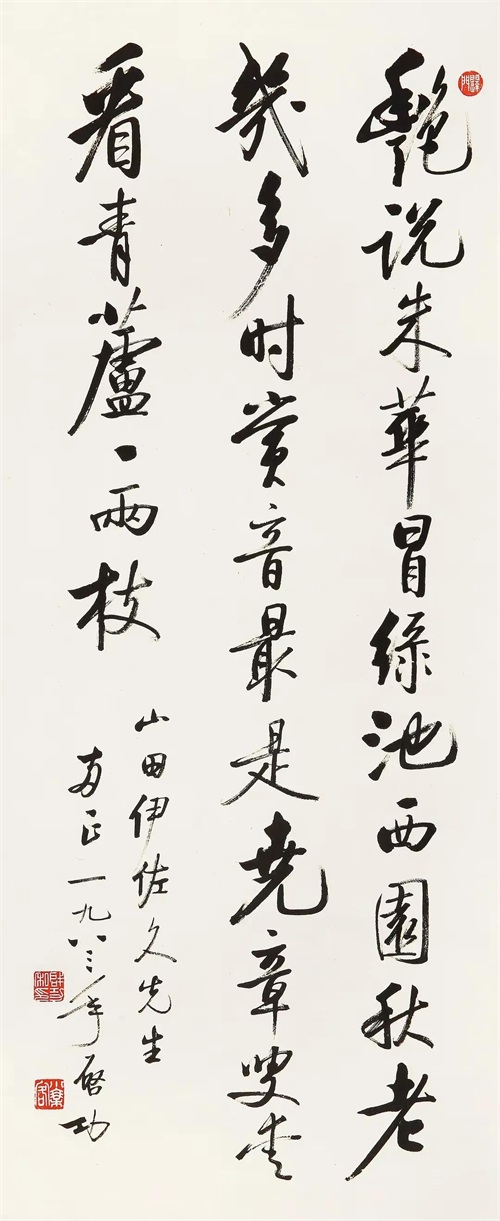 艷说朱華冒緑池西園秋老
幾多时赏音最是尭章叟爱
看青蘆一兩枝
山田伊佐久先生
正一九八三年啓功